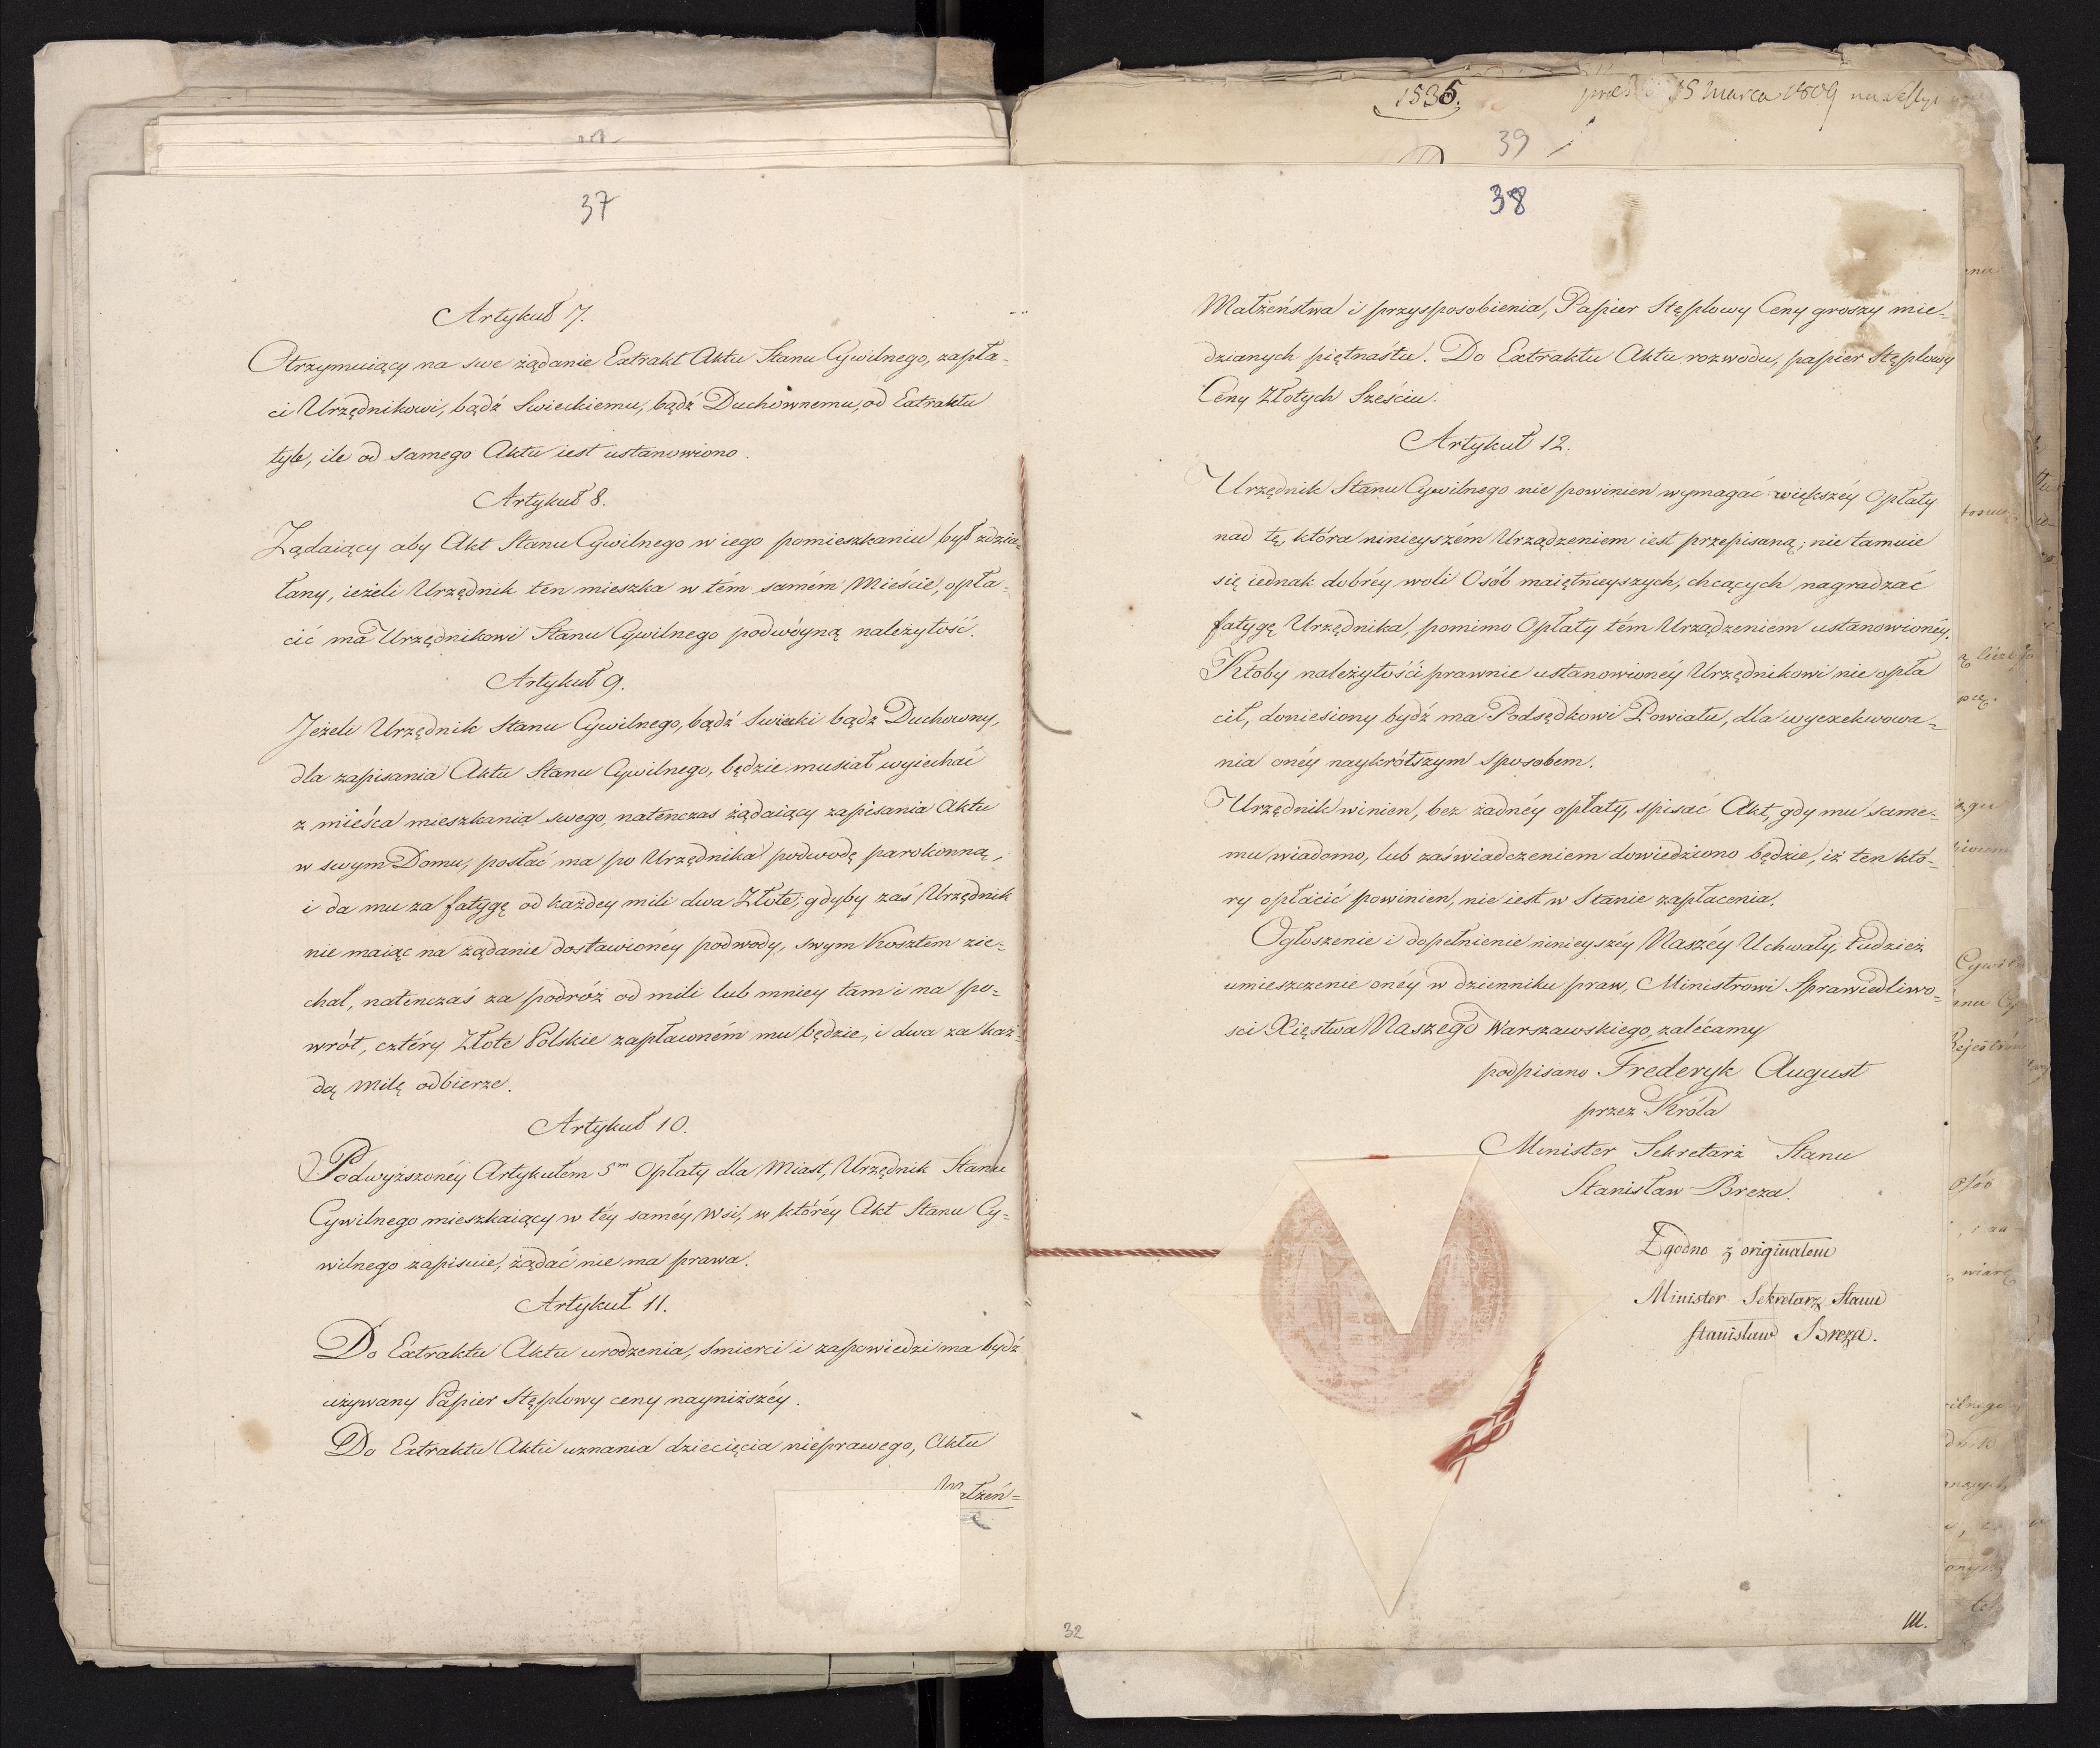 37
Artykuł 7.
Otrzymuiący na swe żądanie Extrakt Aktu Stanu Cywilnego, zapła-
ci Urzędnikowi, bądź Swieckiemu, bądź Duchownemu, od Extraktu
tyle, ile od samego Aktu iest ustanowiono.
Artykuł 8.
Żądaiący aby Akt Stanu Cywilnego w iego pomieszkaniu był zdzia-
łany, ieżeli Urzędnik ten mieszka w tém samém Mieście, opła-
cić ma Urzędnikowi Stanu Cywilnego podwóyną należytość.
Artykuł 9.
Jeżeli Urzędnik Stanu Cywilnego, bądź Swiecki bądz Duchowny,
dla zapisania Aktu Stanu Cywilnego, będzie musiał wyiechać
z mieśca mieszkania swego, natenczas żądaiący zapisania Aktu
w swym Domu, posłać ma po Urzędnika podwodę parokonną,
i da mu za fatygę od każdey mili dwa Złote; gdyby zaś Urzędnik
nie maiąc na żądanie dostawionéy podwody, swym Kosztem zie-
chał, natenczas za podróż od mili lub mniey tam i na po-
wrót, cztéry Złote Polskie zapławném mu będzie, i dwa za każ-
dą milę odbierze.
Artykuł 10.
Podwyższonéy Artykułem 5m Opłaty dla Miast, Urzędnik Stanu
Cywilnego mieszkaiący w téy saméy Wsi, w któréy Akt Stanu Cy-
wilnego zapisuie, żądać nie ma prawa.
Artykuł 11.
Do Extraktu Aktu urodzenia, śmierci i zapowiedzi ma bydź
używany Papier Stęplowy ceny nayniższéy.
Do Extraktu Aktu uznania dziecięcia nieprawego, Aktu
Małżeń-
1535.
15 Marca 1809
39
38
Małżeństwa i przysposobienia, Papier Stęplowy Ceny groszy mie-
dzianych piętnastu. Do Extraktu Aktu rozwodu, papier Stęplowy
Ceny Złotych Sześciu.
Artykuł 12.
Urzędnik Stanu Cywilnego nie powinien wymagać większéy Opłaty
nad tę, która ninieyszém Urządzeniem iest przepisaną; nie tamuie
się iednak dobréy woli Osób maiętnieyszych, chcących nagradzać
fatygę Urzędnika, pomimo Opłaty tém Urządzeniem ustanowionéy.
Ktoby należytości prawnie ustanowionéy Urzędnikowi nie opła
cił, doniesiony bydź ma Podsędkowi Powiatu, dla wyexekwowa-
nia onéy naykrótszym sposobem.
Urzędnik winien, bez żadnéy opłaty, spisać Akt, gdy mu same-
mu wiadomo, lub zaświadczeniem dowiedziono będzie, iż ten któ-
ry opłacić powinien, nie iest w Stanie zapłacenia.
Ogłoszenie i dopełnienie ninieyszéy Naszéy Uchwały, tudzież
umieszczenie onéy w dzienniku praw, Ministrowi Sprawiedliwo-
sci Xięstwa Naszego Warszawskiego, zalécamy
podpisano Frederyk August
przez Króla
Minister Sekretarz Stanu
Stanisław Breza.
Zgodno z originałem
Minister Sekretarz Stanu
Stanisław Breza.
32